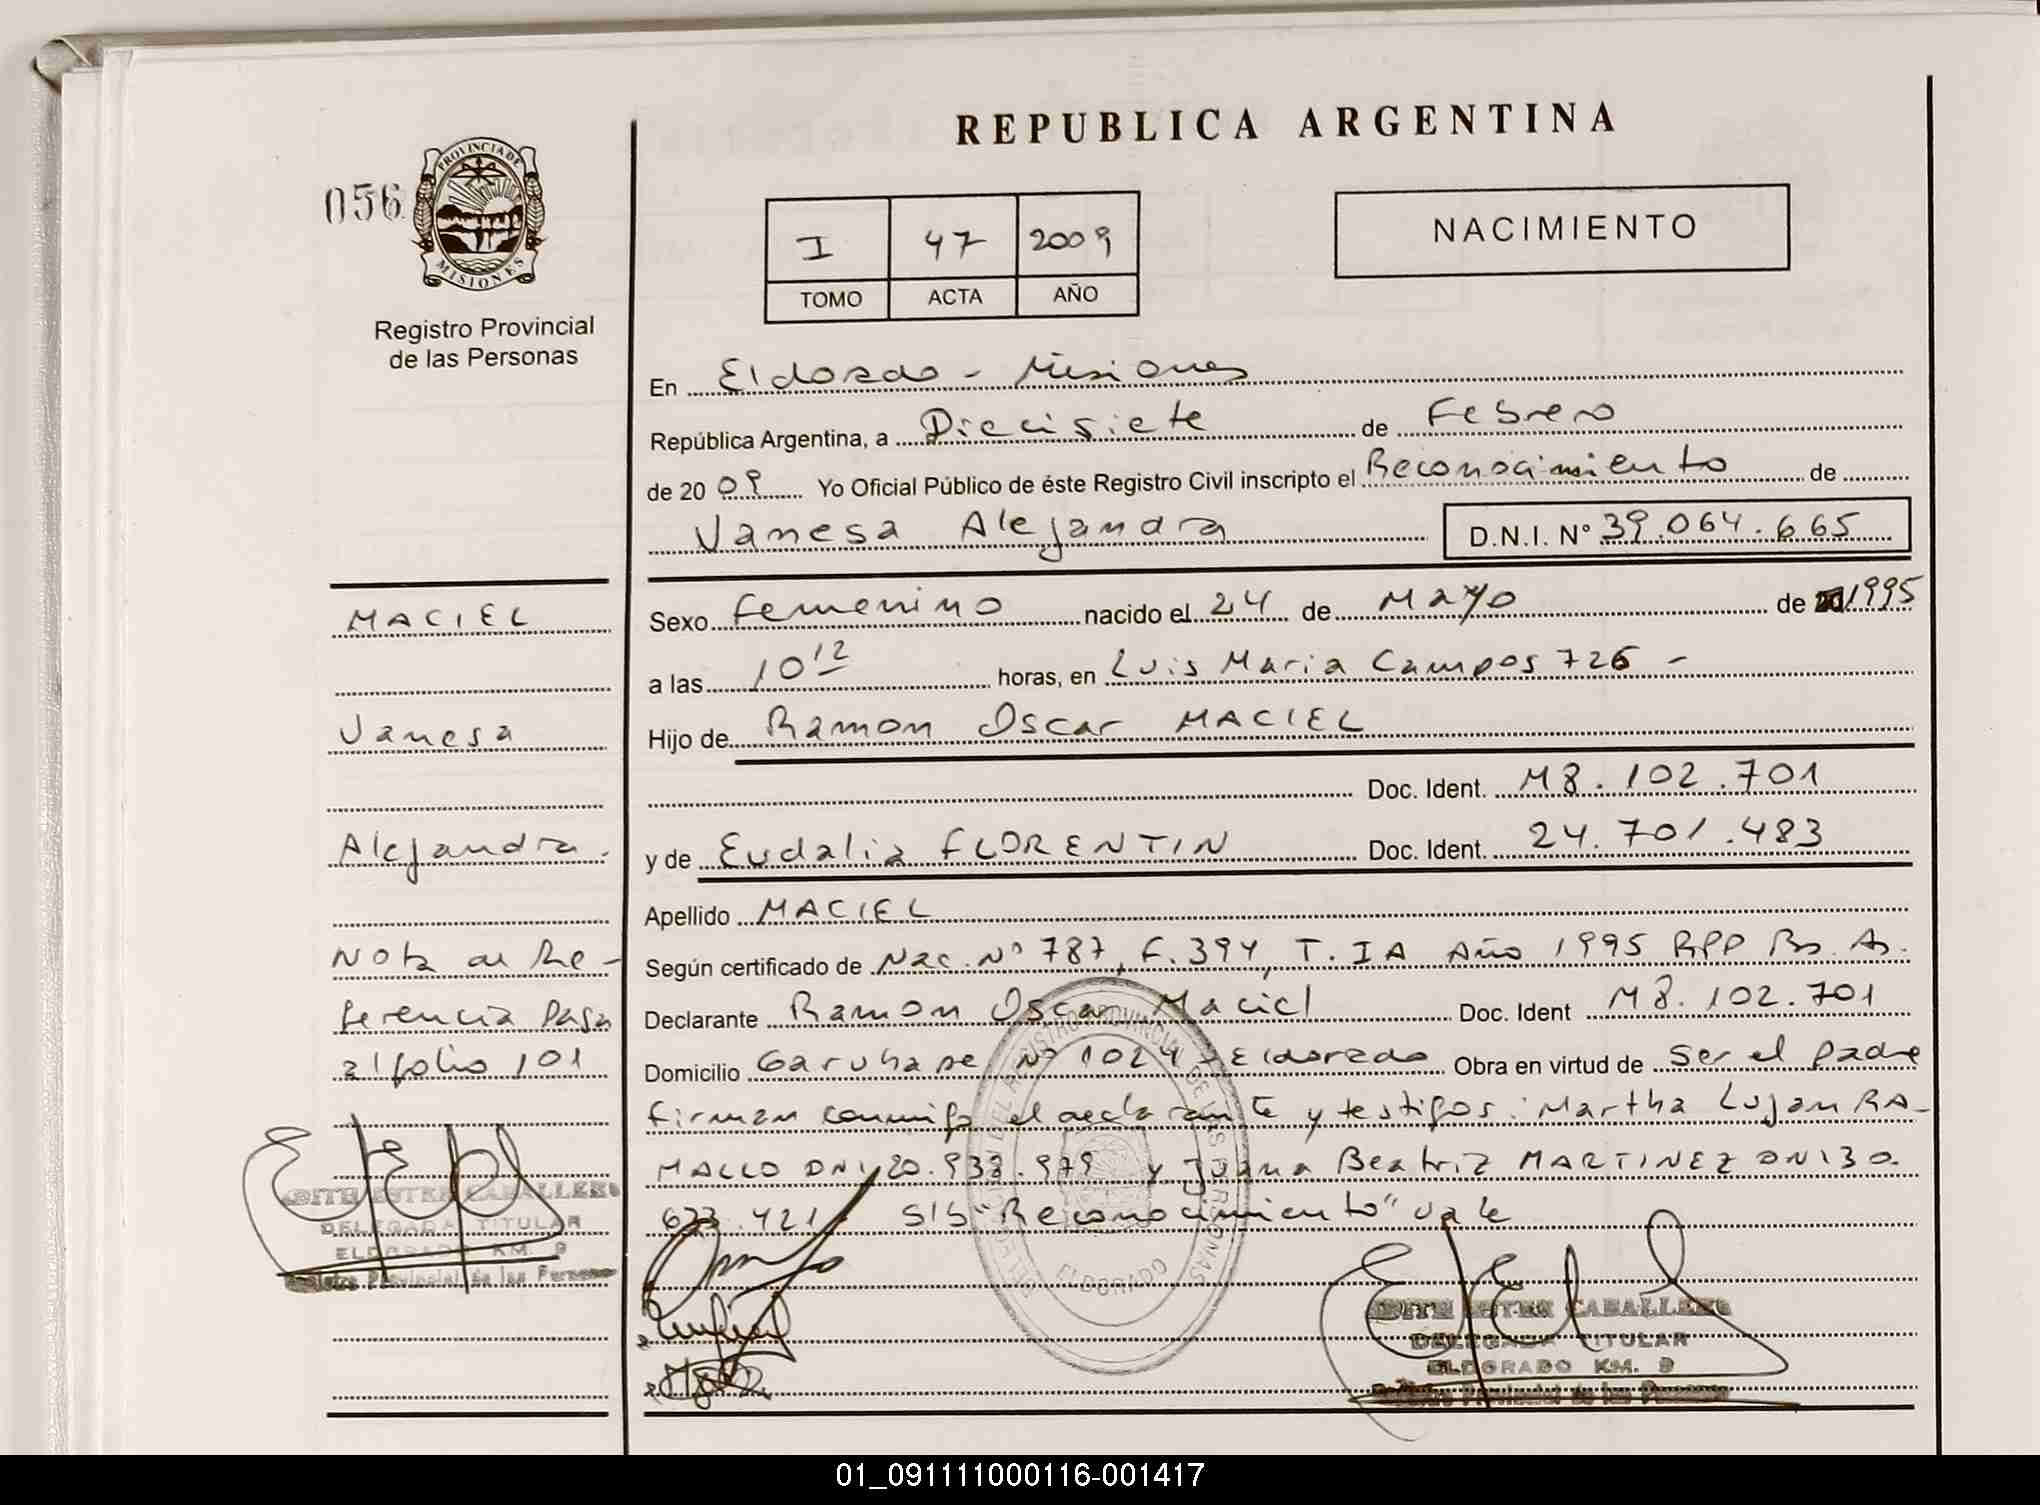 REPUBLICA ARGENTINA
056
PROVINCIA DE
MISIONES
Registro Provincial
de las Personas
I 47 2009
TOMO ACTA AÑO
NACIMIENTO
En Eldorado - Misiones
República Argentina, a Diecisiete de Febrero
de 20 09 Yo Oficial Público de éste Registro Civil inscripto el Reconocimiento de
Vanesa Alejandra D.N.I. Nº 39.064.665
MACIEL
Vanesa
Alejandra.
Nota de Re-
ferencia pasa
al folio 101
EDITH ESTER CABALLERO
DELEGADA TITULAR
ELDORADO KM. 9
Registro Provincial de las Personas
Sexo Femenino nacido el 24 de Mayo de 1995
a las 10 12 horas, en Luis Maria Campos 726 -
Hijo de Ramon Oscar MACIEL
Doc. Ident. M8.102.701
y de Eudalia FLORENTIN Doc. Ident. 24.701.483
Apellido MACIEL
Según certificado de Nac. Nº 787, F. 394, T. I A Año 1995 RPP Bs. As.
Declarante Ramon Oscar Maciel Doc. Ident M8.102.701
Domicilio Garuhape Nº 1024 - Eldorado Obra en virtud de ser el padre
firman conmigo el declarante y testigos: Martha Lujan RA-
MALLO DNI 20.938.979 y Juana Beatriz MARTINEZ DNI 30.
673.421. S/S "Reconocimiento" vale
REGISTRO PROVINCIAL DE LAS PERSONAS
ELDORADO
EDITH ESTER CABALLERO
DELEGADA TITULAR
ELDORADO KM. 9
Registro Provincial de las Personas
01_091111000116-001417